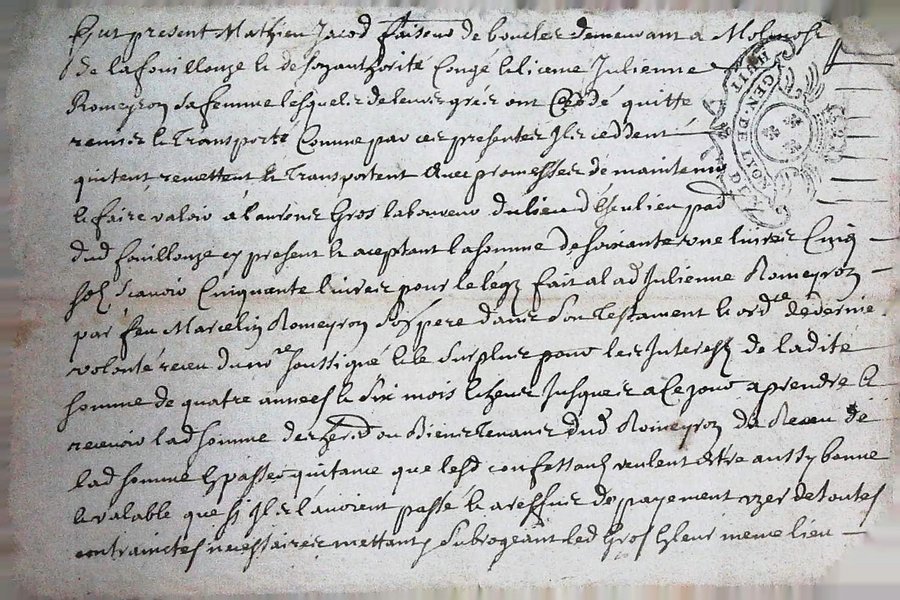 Fut present Mathieu Jacod faiseur de boucles demeurant a Molinost
de lafouillouze le de soy authorité congé licence Julienne
Romeyron sa femme lesquels de leurs grés ont Ceddé quitte
remis et transporté Comme par ces presentes Ils ceddent
quitent remettent et transportent avec promesses de maintenir
et faire valoir a laurens Gros laboureur du lieu
dud fouillouze cy present et aceptant la somme de soixante une livres Cinq
sols scavoir Cinquante livres pour le légt fait a lad Julienne Romeyron
par feu Marcelin Romeyron son pere dans son Testament et ordce de dernie
volonté receu du nore soussigné et le surplus pour les Interest de ladite
somme de quatre années et six mois Jusques a Ce jour a prendre et
recevoir lad somme des hers ou Biens Tenans dud Romeyron du Receu de
lad somme passer quitance que lesd confessants veulent estre aussy bonne
et valable que sy Ils lavoient passé et a reffus de payement uzer de toutes
contrainctes necessaires mettant subrogeant led Gros leur meme lieu
HUIT
GEN. DE LYON